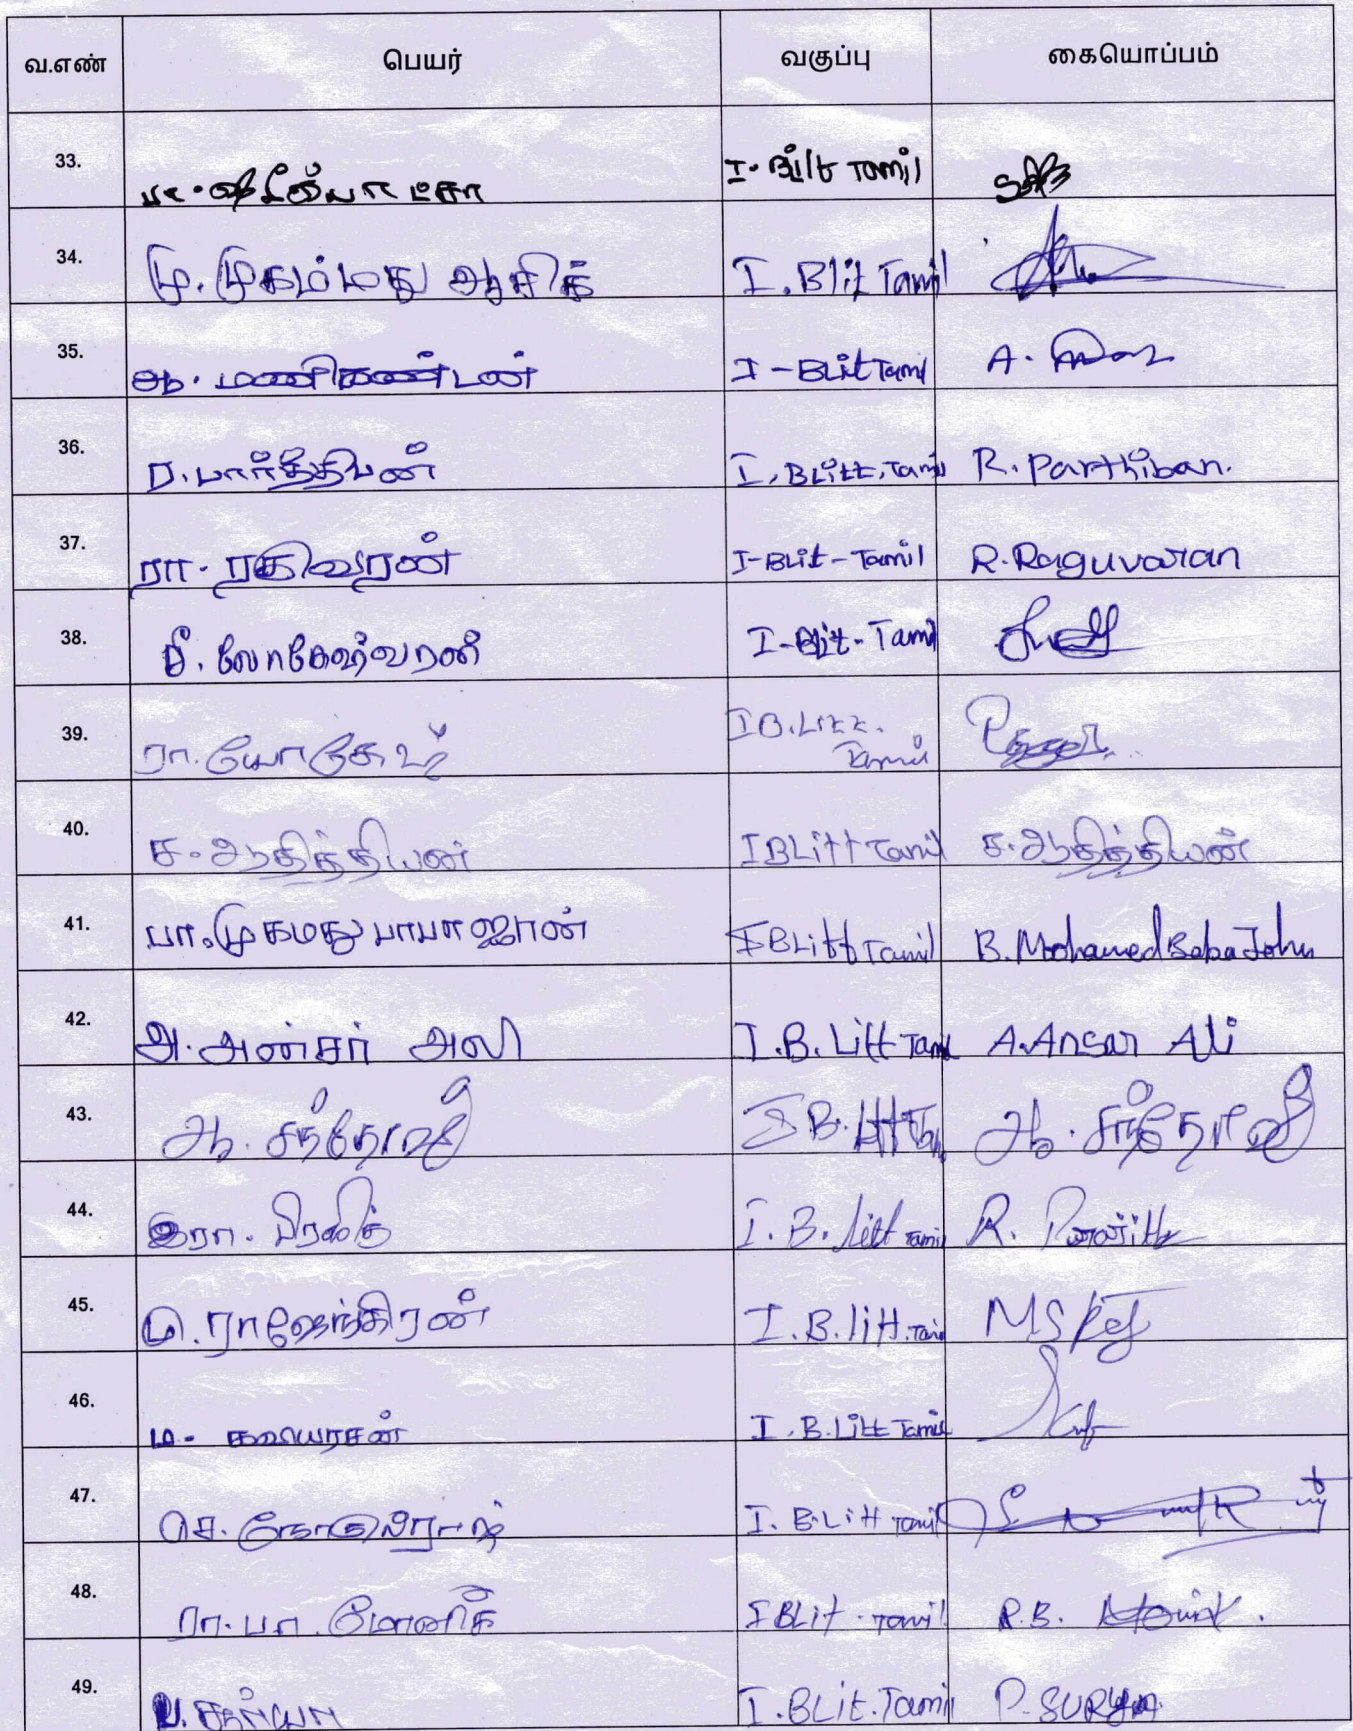 வ.எண் பெயர் வகுப்பு கையொப்பம்
33. I-Blit Tamil
34. மு. முகம்மது ஆசிக் I. Blit Tamil
35. ஆ. மணிகண்டன் I-BLit Tamil A.
36. ர. பார்த்திபன் I, BLitt, Tamil R. Parthiban.
37. ரா. ரகுவரன் I-BLit-Tamil R. Raguvaran
38. சீ. லோகேஷ்வரன் I-BLit-Tamil
39. ரா. யோகேஷ் I B.Litt.
Tamil
40. ச. ஆதித்தியன் I BLitt Tamil ச. ஆதித்தியன்
41. பா. முகமது பாபாஜான் I BLitt Tamil B. Mohamed Baba John
42. அ. அன்சர் அலி I.B.Litt Tamil A. Ansar Ali
43. ஆ. சந்தோஷ் I B.Litt Tam ஆ. சந்தோஷ்
44. இரா. பிரஜித் I.B.litt Tamil R.
45. மு. ராஜேந்திரன் I.B.litt.Tamil
46. ம. கலையரசன் I.B.Litt Tamil
47. செ. கோகுல்ராஜ் I. B.Litt Tamil
48. ரா. பா. மோனிக் I BLit-Tamil R.B.
49. ப. சூர்யா I.BLit.Tamil P. SURYA